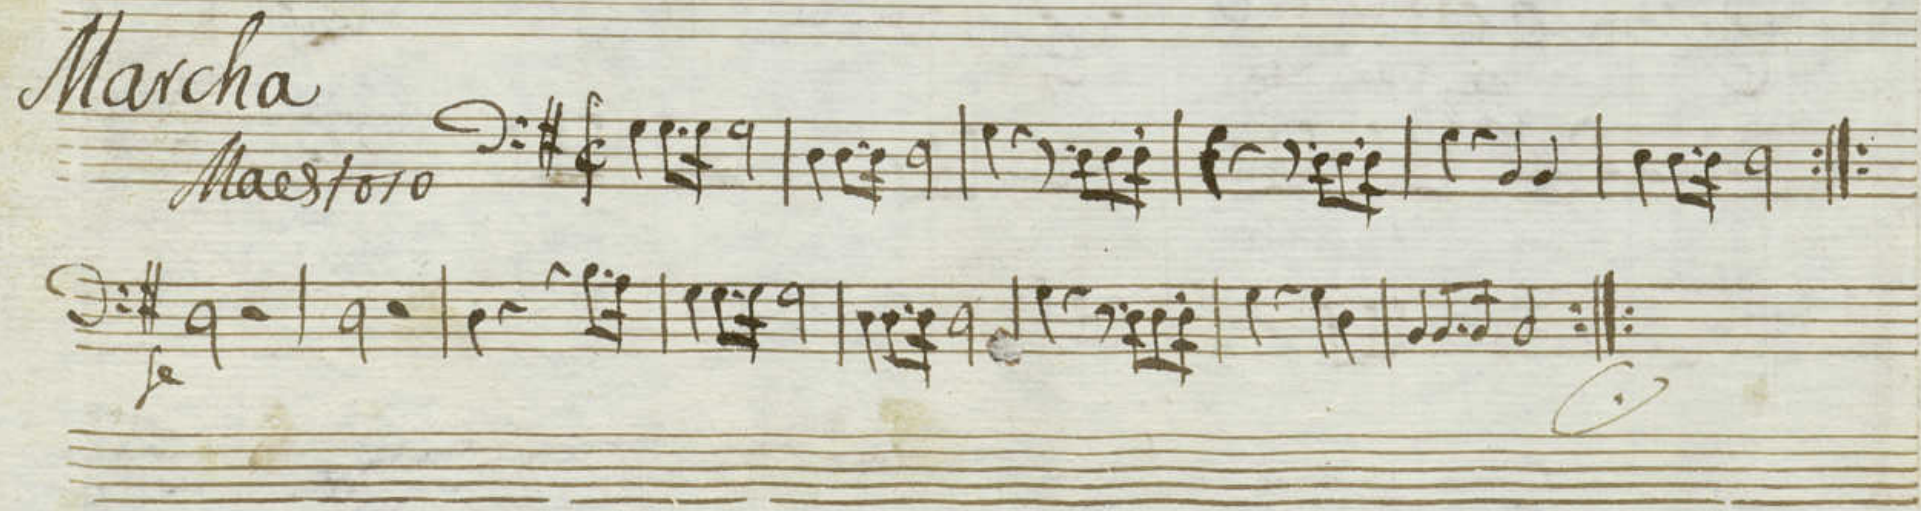 Marcha
Maestoso